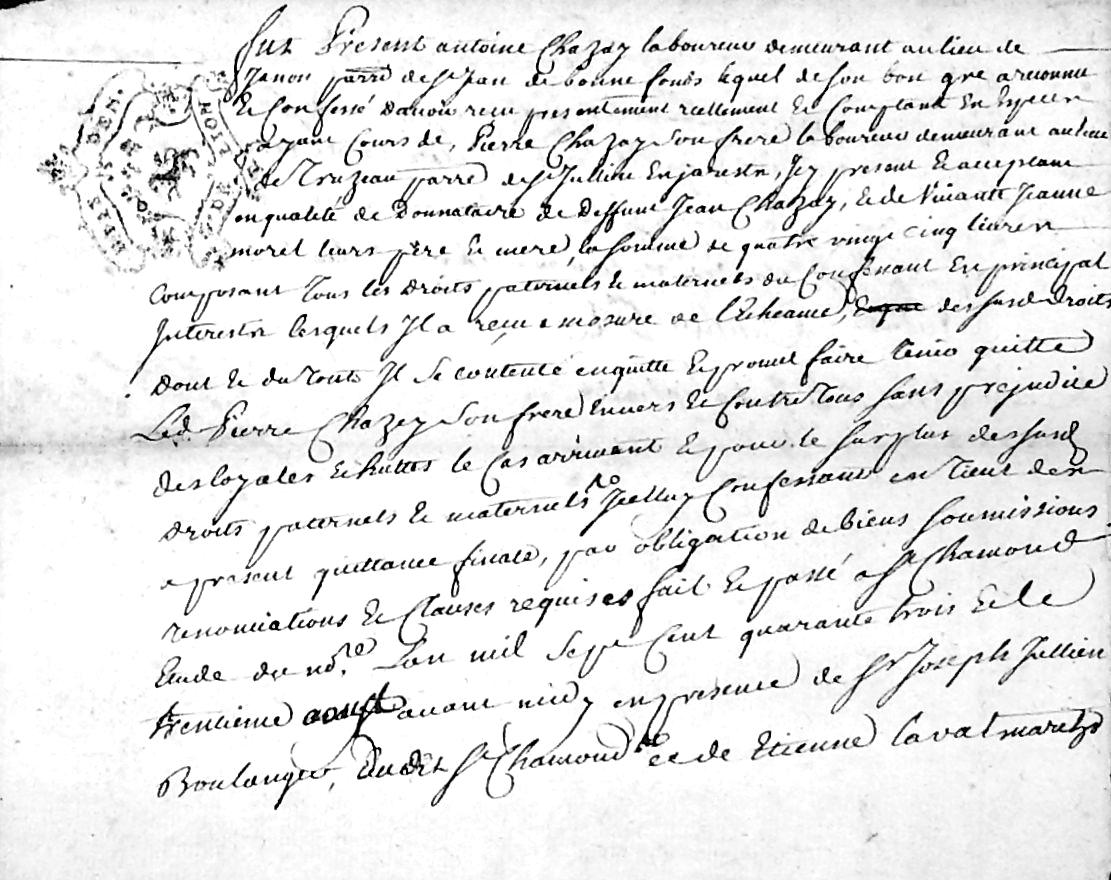 fut Present antoine Chazay laboureur demeurant au lieu de
Janon parre de St Jean de bonne fonds lequel de son bon gré a reconnu
et Confessé d'avoir reçu presentement reellement et Comptant En Especes
ayant Cours de, Pierre Chazay son frere laboureur demeurant au lieu
de Truzeau parre de St Jullien En jarestz, Icy present et acceptant
en qualité de Donnataire de Deffunt Jean Chazay, et de Vivante Jeanne
morel leurs père et mere, la somme de quatre vingt cinq livres
composant Tous les droits paternels et maternels du Confessant En principal
Interestz lesquels Il a reçu a mesure de l'Echeance, des susd droits
dont et du tout Il se contente en quitte et promet faire tenir quitte
Led. Pierre Chazay son frere Envers et Contre Tous sans prejudice
des loyales Echuttes le Cas arrivant et pour le surplus des susd
droits paternels et maternels Icelluy Confessant en Tient des
a present quittance finale, par obligation de biens soumissions
renonciations et Clauses requises fait et passé a St Chamond
Etude du no.re L'an mil sept Cent quarante trois et le
trentieme aoust avant midy en presence de Sr Joseph Jullien
Boulanger, dudit St Chamond et de Etienne Laval